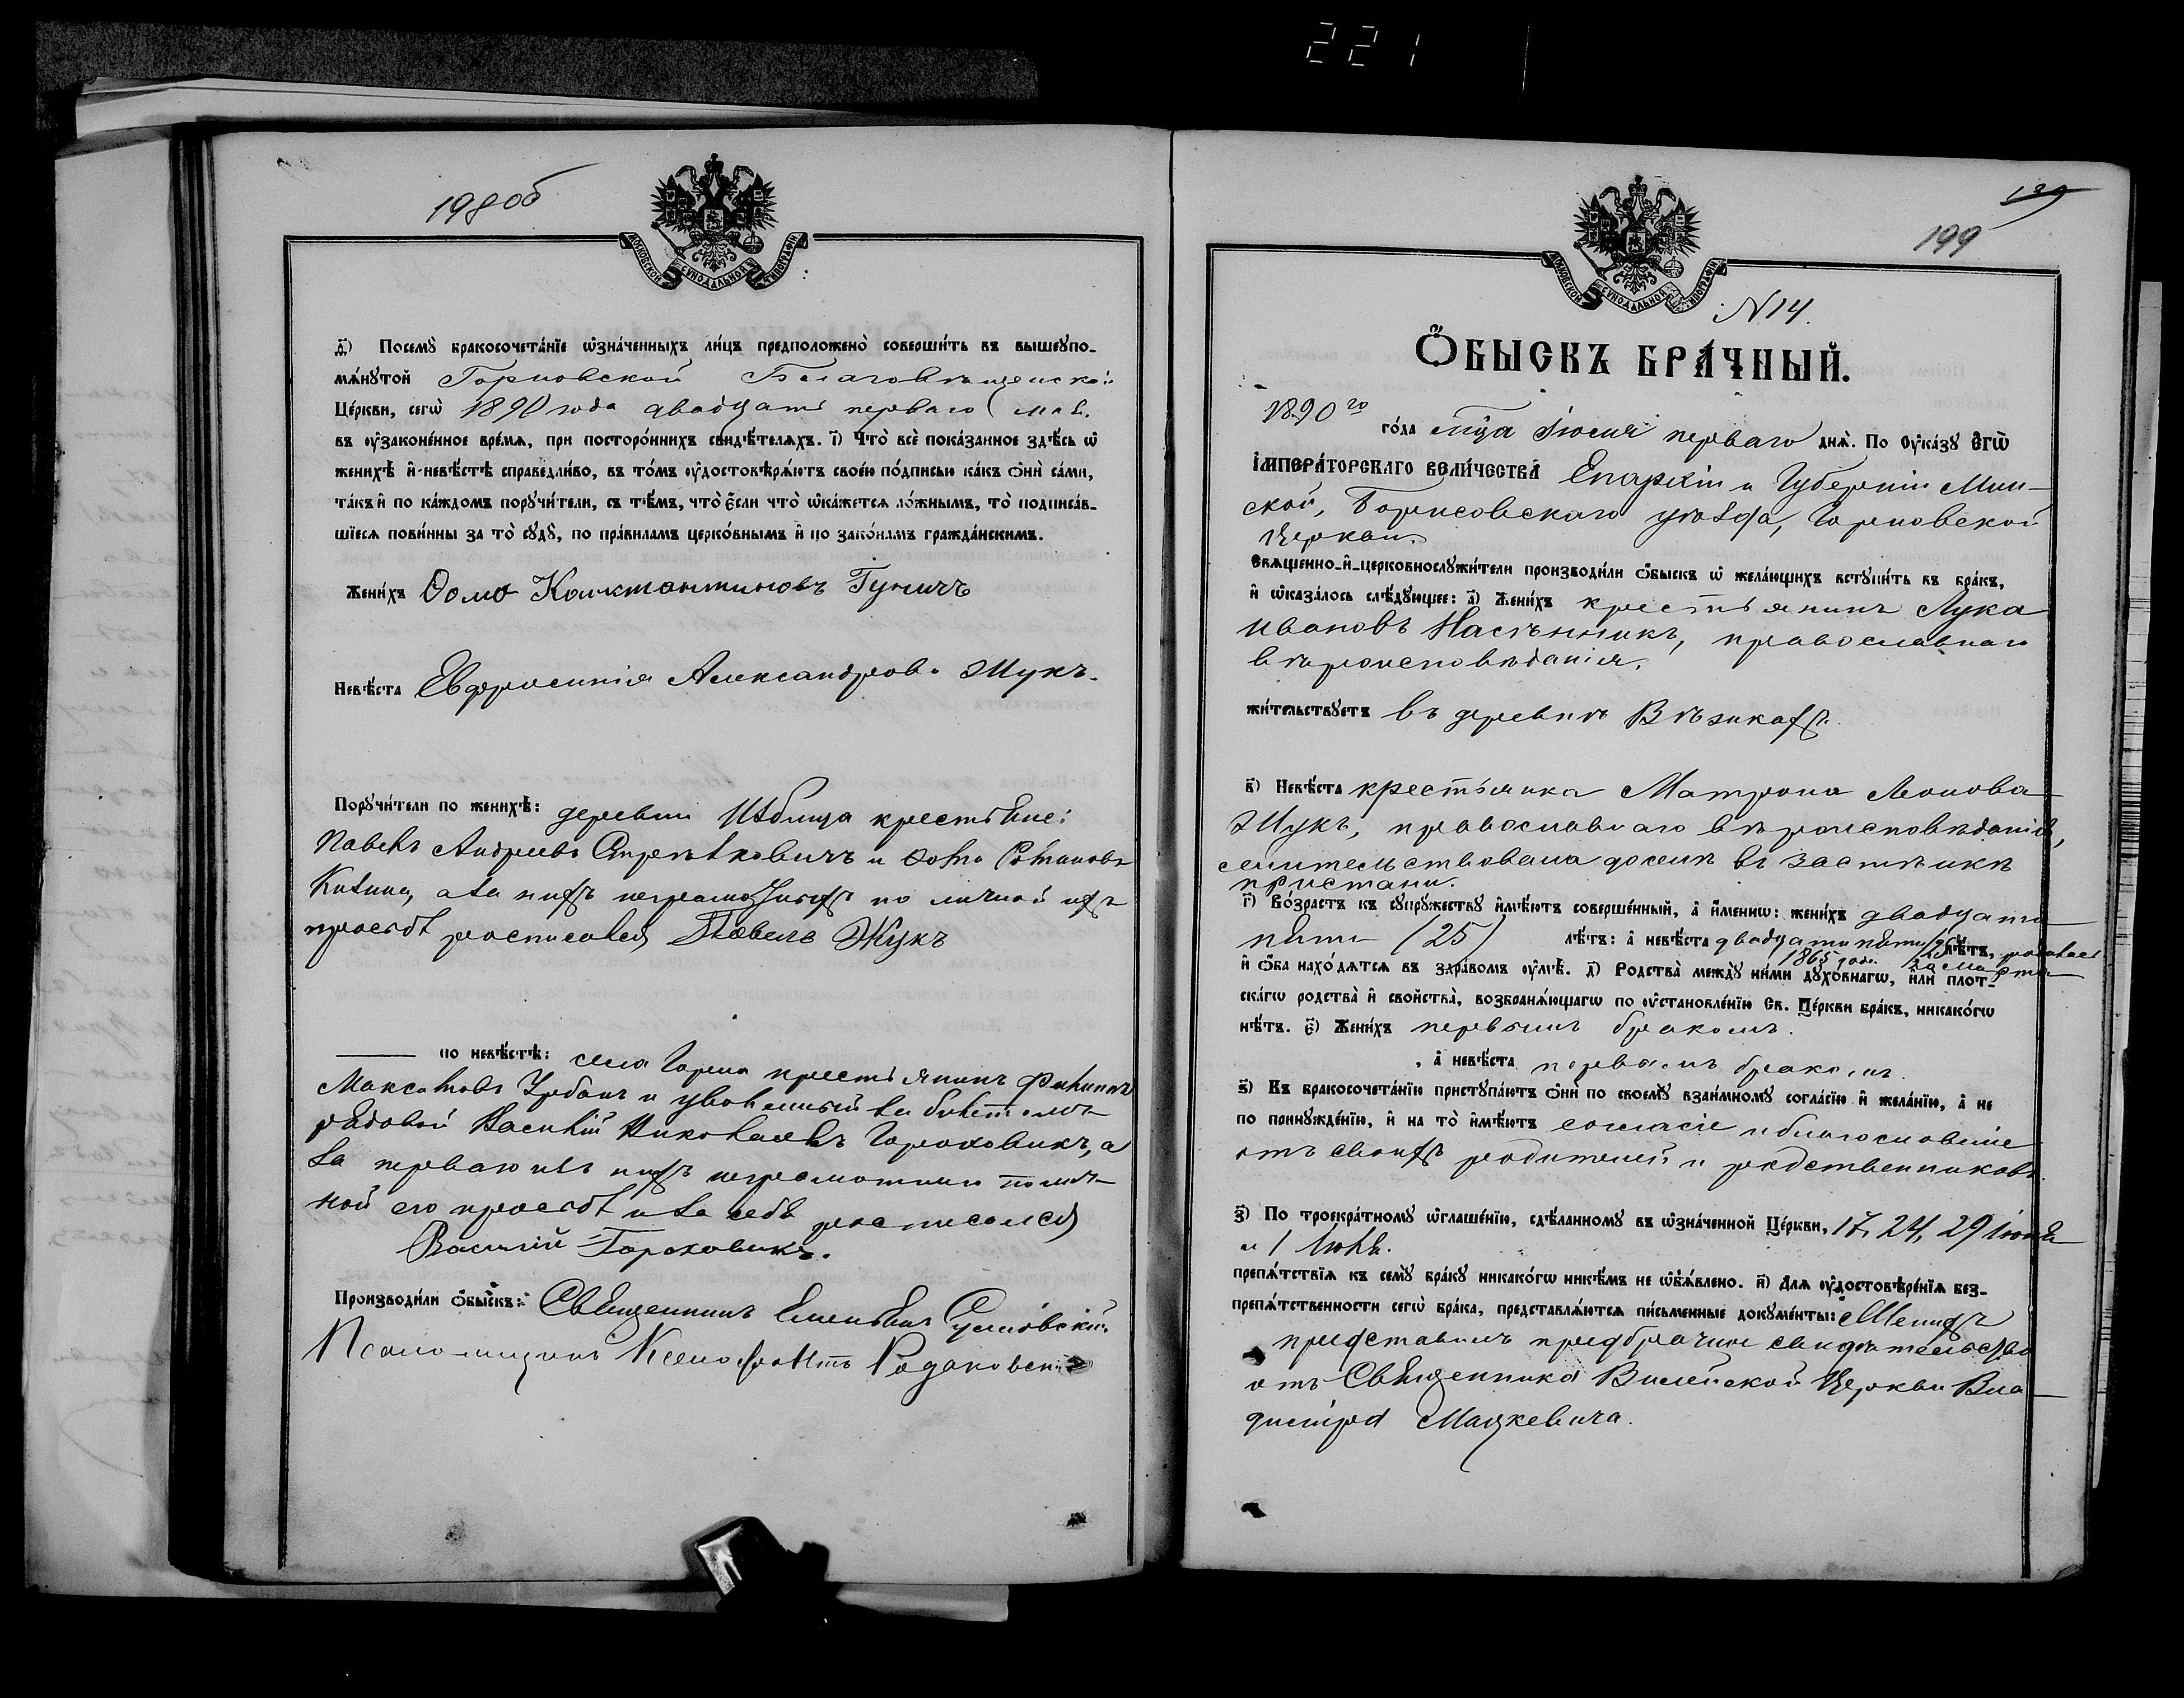 221
198об
МОСКОВСКОЙ СѴНОДАЛЬНОЙ ТИПОГРАФІИ
Посемꙋ бракосочета́нїе ѡ҆зна́ченныхъ ли́цъ предположено̀ соверши́ть въ вышеꙋпо-
мѧ́нꙋтой Горновской Благовѣщенской
Це́ркви, сегѡ̀ 1890 года двадцать перваго мая
въ ᲂу҆зако́ненное вре́мѧ, при посторо́ннихъ свидѣ́телѧхъ. і҃) Что̀ всѐ пока́занное здѣ́сь ѡ҆
женихѣ̀ и҆ невѣ́стѣ справедли́во, въ то́мъ ᲂу҆достовѣрѧ́ютъ свое́ю по́дписью ка́къ ѻ҆нѝ са́ми,
та́къ и҆ по ка́ждомъ порꙋчи́тели, съ тѣ́мъ, что̀ є҆́сли что̀ ѡ҆ка́жется ло́жнымъ, то̀ подписа́в-
шїеся пови́нны за то̀ сꙋдꙋ̀, по пра́виламъ церко́внымъ и҆ по зако́намъ гражда́нскимъ.
Жени́хъ Ѳома Константиновъ Гуничъ
Невѣ́ста Евфросинія Александрова Жукъ.
Порꙋчи́тели по женихѣ̀: деревни крестьяне:
Павелъ Андреевъ Стрельковичъ и Ѳома Романовъ
а за нихъ неграмотныхъ по личной ихъ
просьбѣ росписался Павелъ Жукъ
по невѣ́стѣ: села Горна крестьянинъ Филиппъ
Максимовъ Урбанъ и уволенный въ билетъ
рядовой Василій Николаевъ Гороховикъ, а
за перваго изъ нихъ неграмотнаго по лич-
ной его просьбѣ и за себя росписался
Василій Гороховикъ.
Производи́ли ѻ҆́быскъ: Священникъ
Псаломщикъ Ксенофонтъ Родаковскій
139
199
МОСКОВСКОЙ СѴНОДАЛЬНОЙ ТИПОГРАФІИ
N 14.
Ѻ҆́БЫСКЪ БРА́ЧНЫЙ.
1890го го́да мца Іюня перваго днѧ̀. По ᲂу҆ка́зꙋ Є҆гѡ̀
І҆МПЕРА́ТОРСКАГО ВЕЛИ́ЧЕСТВА Епархіи и Губерніи Мин-
ской, Борисовскаго уѣзда, Горновской
Церкви
Свѧще́нно-и҆-церковнослꙋжи́тели производи́ли ѻ҆́быскъ ѡ҆ жела́ющихъ встꙋпи́ть въ бра́къ,
и҆ ѡ҆каза́лось слѣ́дꙋющее: а҃) Жени́хъ крестьянинъ Лука
Ивановъ Насѣнникъ, православнаго
вѣроисповѣданія,
жи́тельствꙋетъ въ деревнѣ Вязикахъ.
в҃) Невѣ́ста крестьянка Матрона Леонова
Жукъ, православнаго вѣроисповѣданія,
жительствовала доселѣ въ застѣнкѣ
пристани.
г҃) Во́зрастъ къ сꙋпрꙋ́жествꙋ и҆мѣ́ютъ соверше́нный, а҆ и҆́меннѡ: жени́хъ двадцати
пяти (25) лѣ́тъ: а҆ невѣ́ста двадцати пяти (25) лѣ́тъ, родилась
1865 года 30 марта
и҆ ѻ҆́ба нахо́дѧтся въ здра́вомъ ᲂу҆мѣ̀. д҃) Родства̀ междꙋ̀ ни́ми дꙋхо́внагѡ, и҆лѝ плот-
ска́гѡ родства̀ и҆ сво́йства, возбранѧ́ющагѡ по ᲂу҆становле́нїю Св. Це́ркви бра́къ, никако́гѡ
нѣ́тъ. є҃) Жени́хъ первымъ бракомъ.
, а҆ невѣ́ста первымъ бракомъ
ѕ҃) Въ бракосочета́нїю пристꙋпа́ютъ ѻ҆нѝ по своемꙋ̀ взаи́мномꙋ согла́сїю и҆ жела́нїю, а҆ не
по принꙋжде́нїю, и҆ на то̀ и҆мѣ́ютъ согласіе и благословеніе
отъ своихъ родителей и родственниковъ.
з҃) По троекра́тномꙋ ѡ҆глаше́нїю, сдѣ́ланномꙋ въ ѡ҆зна́ченной Це́ркви, 17, 24, 29
и 1 Іюня.
препѧ́тствїя къ семꙋ̀ бра́кꙋ никако́гѡ никѣ́мъ не ѡ҆б̾ѧ́влено. и҃) Для ᲂу҆достовѣре́нїя без-
препѧ́тственности сегѡ̀ бра́ка, представлѧ́ются пи́сьменные докꙋме́нты: Женихъ
представилъ предбрачное свидѣтельство
отъ Священника Вилейской Церкви Вла-
диміра Мацкевича.